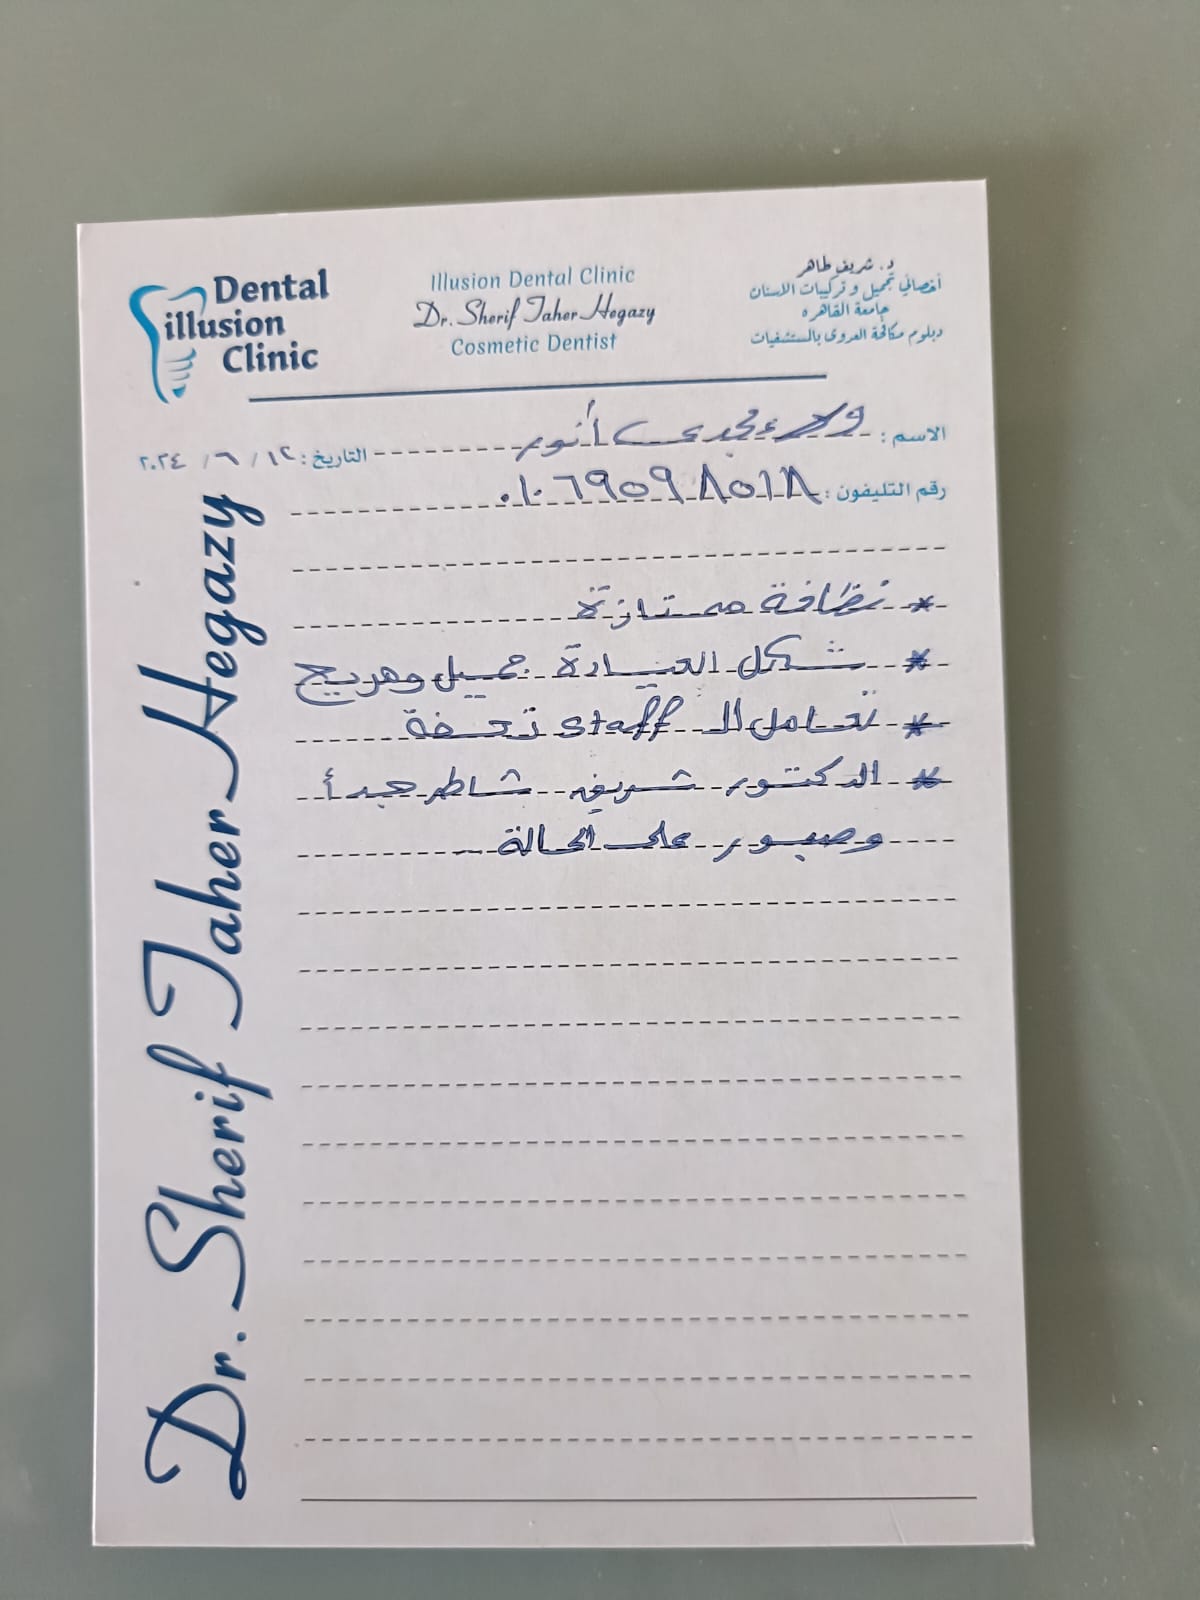 Dental
illusion
Clinic
Illusion Dental Clinic
Dr. Sherif Taher Hegazy
Cosmetic Dentist
د. شريف طاهر
أخصائي تجميل و تركيبات الاسنان
جامعة القاهره
دبلوم مكافحة العدوى بالمستشفيات
الاسم : ولاء مجدى أنور
التاريخ : ١٢ / ٦ / ٢٠٢٤
رقم التليفون : ٠١٠٦٩٥٩٨٥١٨
* نظافة ممتازة
* شكل العيادة جميل ومريح
* تعامل الـ staff تحفة
* الدكتور شريف شاطر جدأ
وصبور على الحالة
Dr. Sherif Taher Hegazy